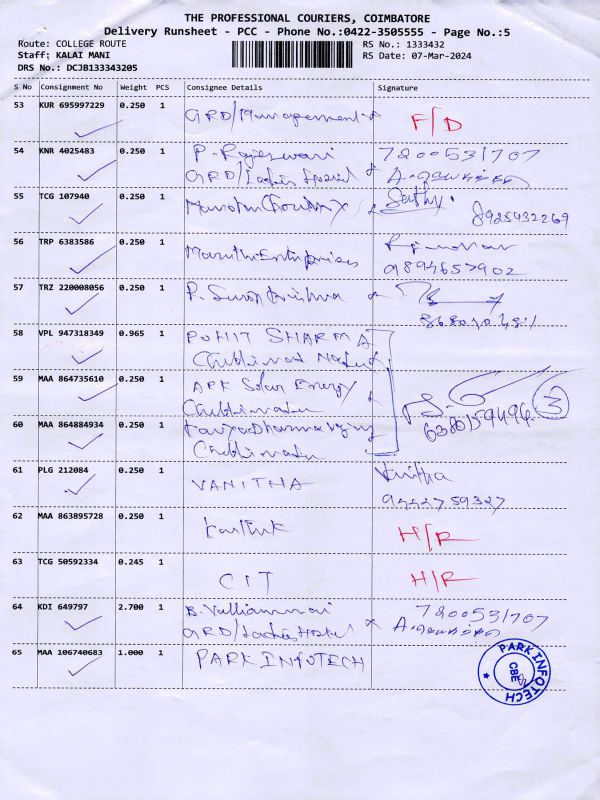 THE PROFESSIONAL COURIERS, COIMBATORE
Delivery Runsheet - PCC - Phone No.:0422-3505555 - Page No.:5
Route: COLLEGE ROUTE
RS No.: 1333432
Staff: KALAI MANI
RS Date: 07-Mar-2024
DRS No.: DCJB133343205
S No Consignment No Weight PCS Consignee Details Signature
53 KUR 695997229 0.250 1
GRD/Management F/D
54 KNR 4025483 0.250 1 P. Rajeswari 7200531707
GRD/Ladies
55 TCG 107940 0.250 1 Sathy.
8925432269
56 TRP 6383586 0.250 1
Maruthi Enterprises 9894657902
57 TRZ 220008056 0.250 1 P.
58 VPL 947318349 0.965 1 ROHIT SHARMA
59 MAA 864735610 0.250 1 APK Solar Energy 3
6380159494
60 MAA 864884934 0.250 1
61 PLG 212084 0.250 1 VANITHA Vanitha
9442759327
62 MAA 863895728 0.250 1 Karthik H/R
63 TCG 50592334 0.245 1 CIT H/R
64 KDI 649797 2.700 1 B. Valliammai 7200531707
GRD/Ladies Hostel
65 MAA 106740683 1.000 1 PARK INFOTECH
PARK INFOTECH
CBE